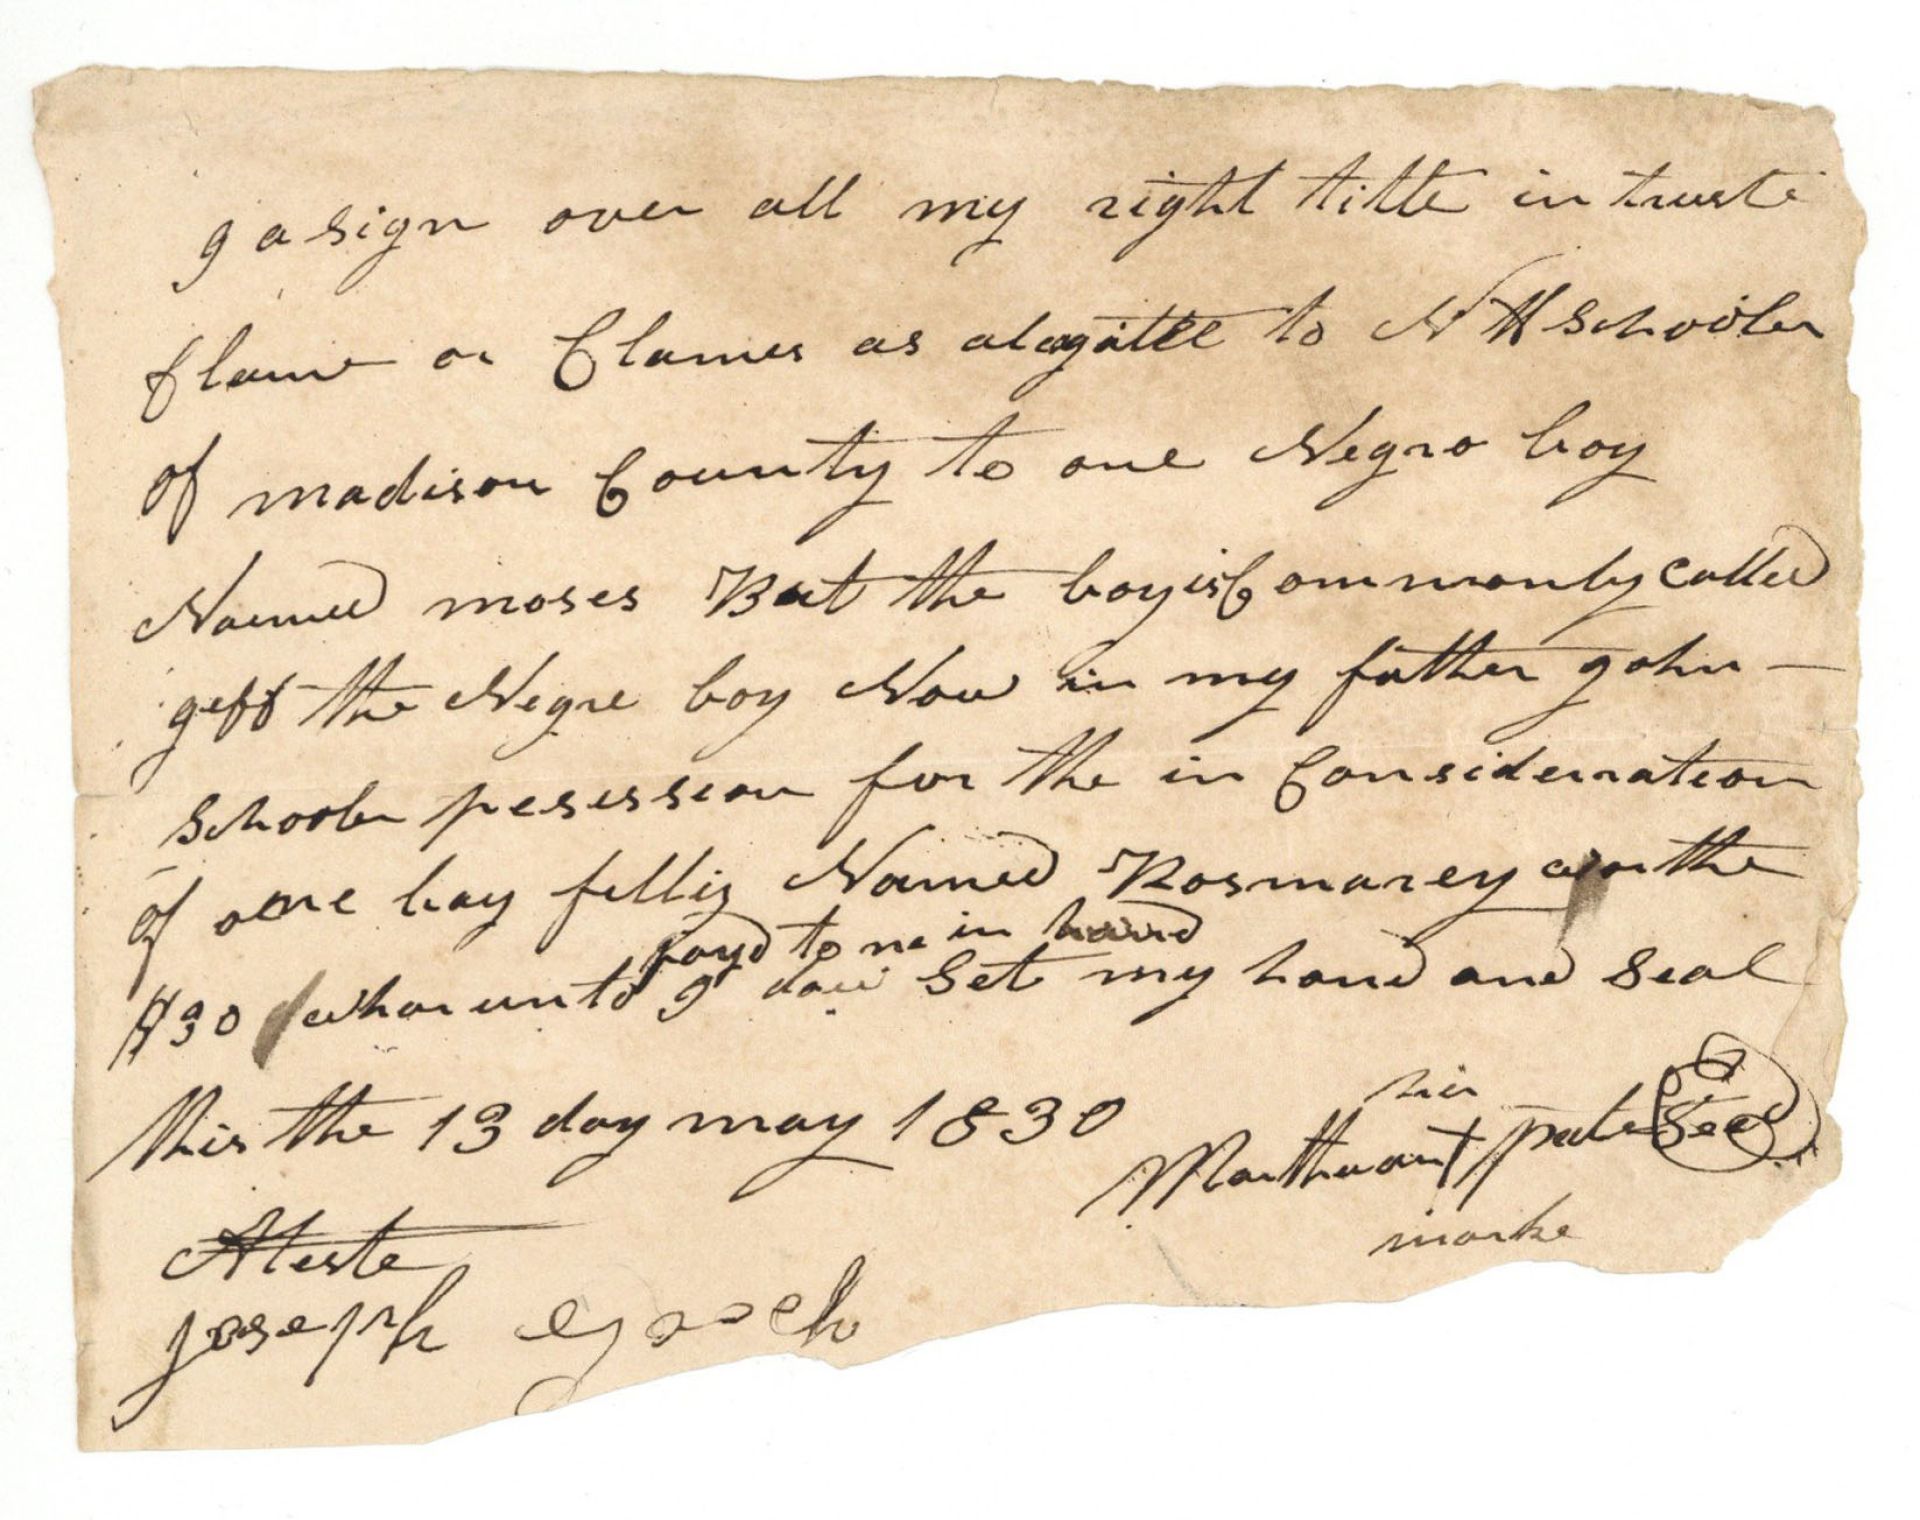 I asign over all my right title intruste
Clame or Clames as alagatee to N H Schooler
of madison County to one Negro boy
Named moses But the boy is Commonly Called
geff the Negre boy Now in my father John
Schooler pesession for the in Considerration
of one bay filly Named Rosmarey worthe
payd to me in hand
$30 wharunto I dow Set my hand and Seal
this the 13 day may 1830
his
Marthuant X pate Seal
marke
Ateste
Joseph gooch